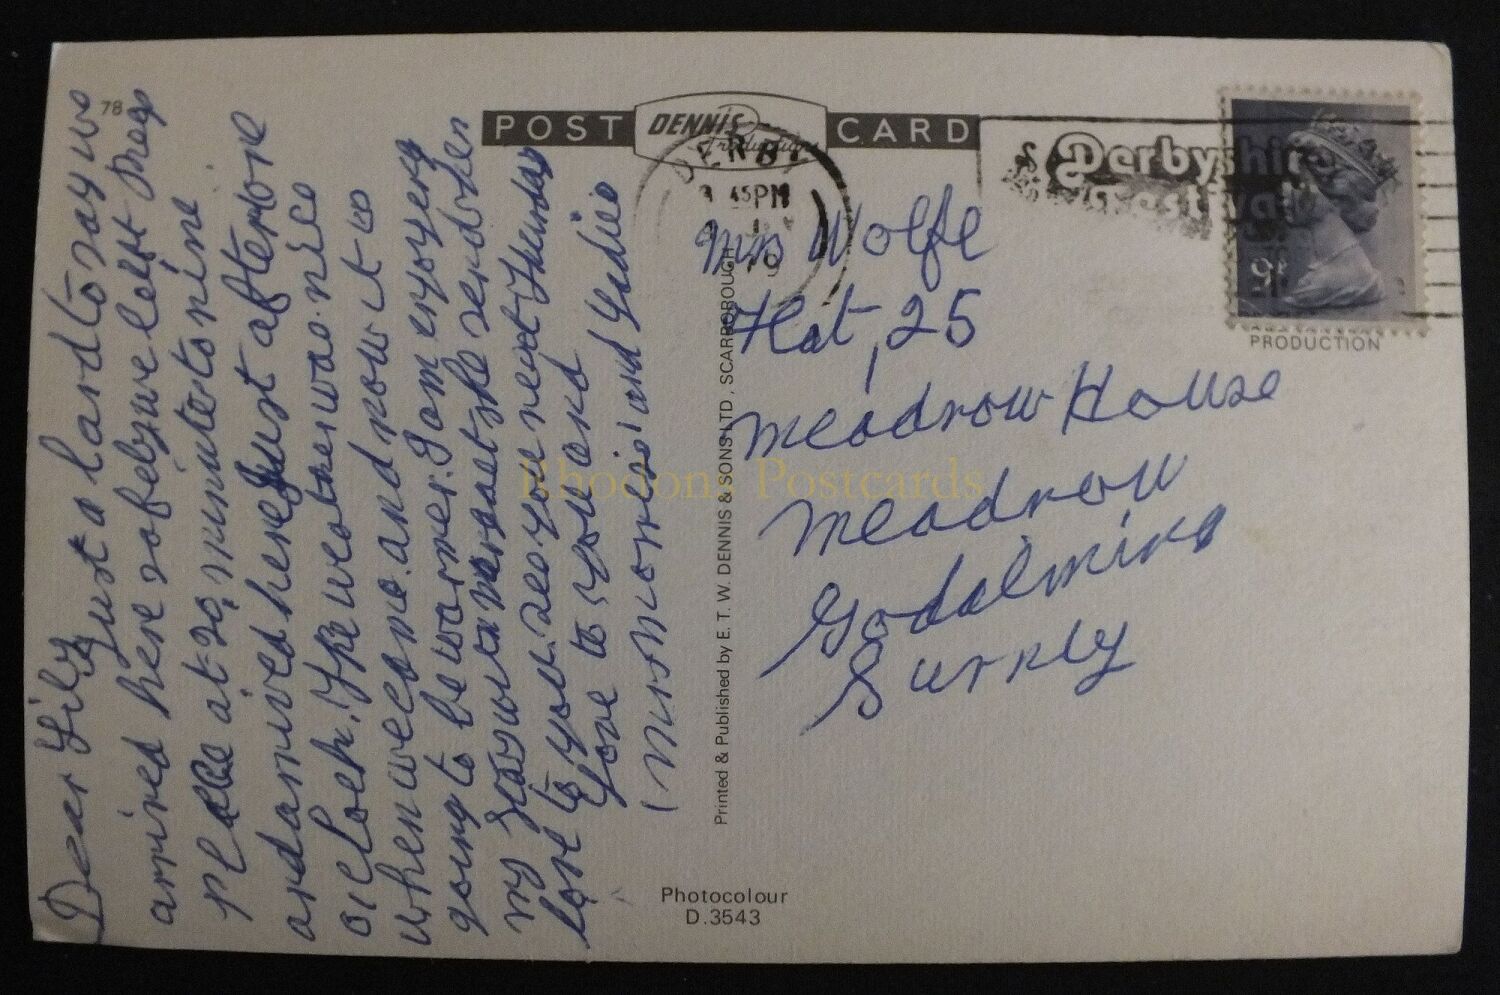 78
POST DENNIS Productions CARD
DERBY
3 45PM
Derbyshire
Festival
9P
PRODUCTION
Dear Lily Just a card to say we
arrived here safely, we left
place at 20 minutes to nine
and arrived here just after one
oclock. The weather was nice
when we came. and now it is
going to be warmer. I am enjoying
my stay
see you next Thursday
love to you and
love to you and
Mrs Morris and
Mrs Wolfe
Flat, 25
Meadrow House
Meadrow
Godalming
Surrey
Printed & Published by E. T. W. DENNIS & SONS LTD., SCARBOROUGH
Photocolour
D.3543
Rhodons Postcards